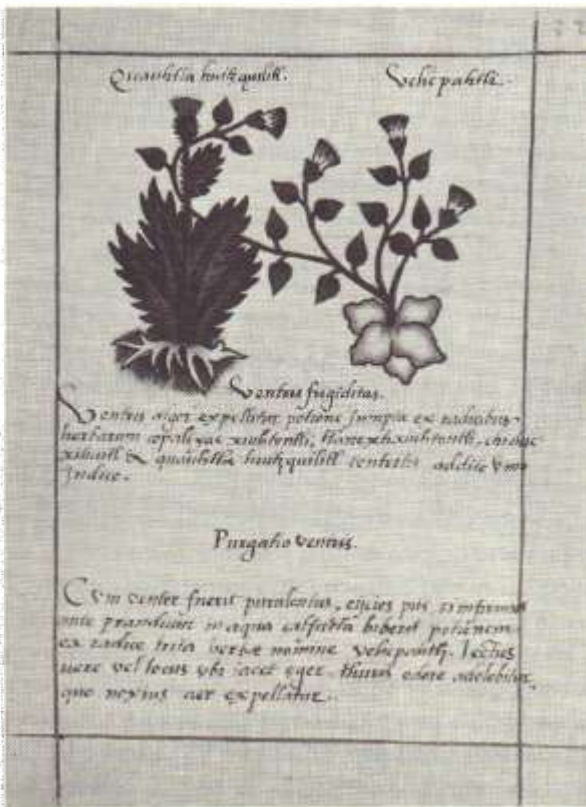 Quauhtla huitzquilitl. Vehe pahtli.
Ventris frigiditas.
Ventris algor expellitur potione sumpta ex radicibus
herbarum xiuhtontli,
& quauhtla huitzquilitl addito vino
Indico.
Purgatio ventris.
Cum venter fuerit purulentus, eijcies pus si infirmus
ante prandium in aqua calfacta biberit potionem
ex radice trita herbæ nomine vehe pahtli. Lectus
vere vel locus vbi iacet eger, thuris odore adolebitur,
quo noxius aer expellatur.